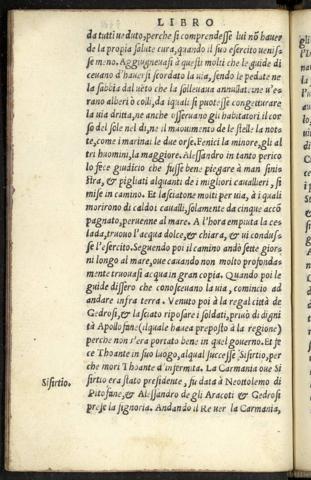 LIBRO
da tutti ueduto, perche si comprendesse lui nõ hauer
de la propia salute cura, quando il suo esercito uenis
se meno. Aggiugneuasi à questi molti che le guide di
ceuano d'hauersi scordato la uia, sendo le pedate ne
la sabbia dal uẽto che la solleuaua annullate: ne u'e
rano alberi ò colli, da i quali si potesse congetturare
la uia dritta, ne anche osseruano gli habitatori il cor
so del sole nel di, ne il mouimento de le stelle la not
te, come i marinai le due orse, Fenici la minore, gli al
tri huomini, la maggiore. Alessandro in tanto perico
lo fece giudicio che fusse bene piegare à man sini
stra, & pigliati alquanti de i migliori cauallieri, si
mise in camino. Et lasciatone molti per uia, à i quali
morirono di caldo i caualli, solamente da cinque accõ
pagnato, peruenne al mare. A l'hora empiuta la ce
lada, truouò l'acqua dolce, & chiara, & ui condus
se l'esercito. Seguendo poi il camino andò sette gior
ni longo al mare, oue cauando non molto profonda
mente truouasi acqua in gran copia. Quando poi le
guide dissero che conosceuano la uia, comincio ad
andare infra terra. Venuto poi à la regal città de
Gedrosi, & lasciato riposare i soldati, priuò di digni
tà Apollofane (ilquale haueua preposto à la regione)
perche non s'era portato bene in quel gouerno. Et fe
ce Thoante in suo luogo, alqual successe Sisirtio, per
che mori Thoante d'infermita. La Carmania oue Si
Sifirtio.
firtio era stato presidente, fu data à Neottolemo di
Pitofane, & Alessandro de gli Aracoti & Gedrosi
prese la signoria. Andando il Re uer la Carmania,